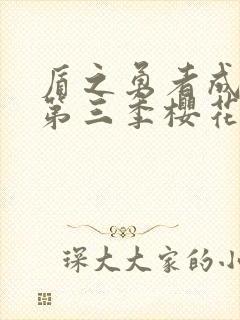 盾之勇者成
第三季樱花
琛大大家的小